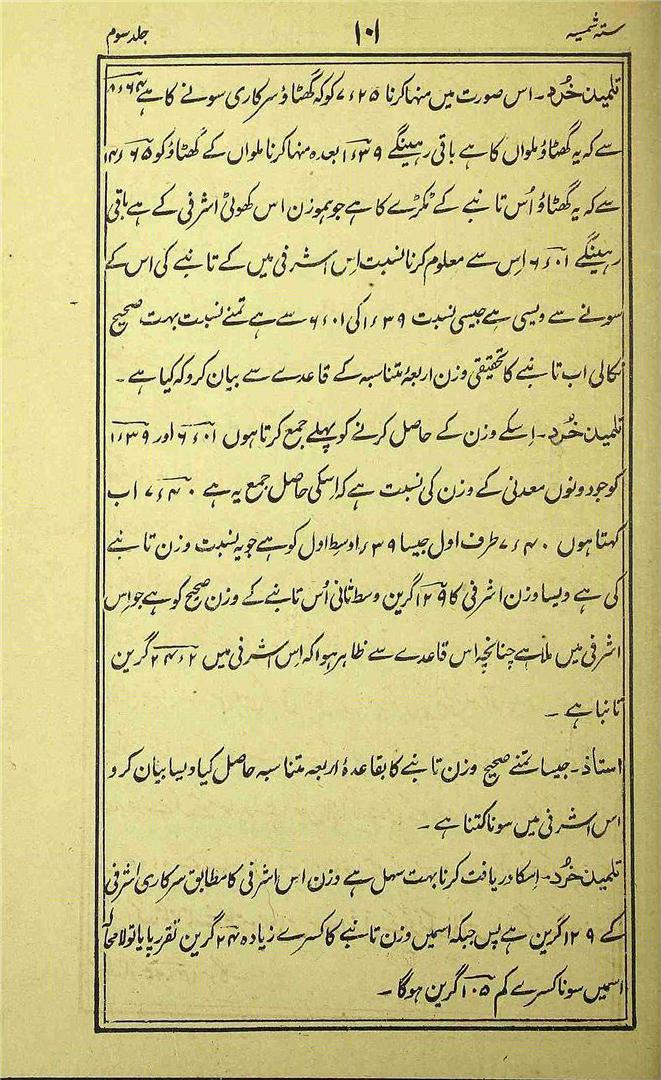 ستہ شمسیہ ۱۰۱ جلد سوم
تلمیذ خُرد۔ اس صورت میں منہا کرنا ۷ء۲۵ کو کہ گھٹاؤ سرکاری سونے کا ہے ۸ء۶۴
سے کہ یہ گھٹاؤ ملواں کا ہے باقی رہینگے ۱ء۳۹ بعدہ منہا کرنا ملواں کے گھٹاؤ کو ۱۴ء۶۵
سے کہ یہ گھٹاؤ اُس تانبے کے ٹکڑے کا ہے جو ہموزن اس کھوٹی اشرفی کے ہے باقی
رہینگے ۶ء۰۱ اِس سے معلوم کرنا نسبت اِس اشرفی میں کے تانبے کی اس کے
سونے سے ویسی ہے جیسی نسبت ۱ء۳۹ کی ۶ء۰۱ سے ہے تمنے نسبت بہت صحیح
نکالی اب تانبے کا تحقیقی وزن اربعہ متناسبہ کے قاعدے سے بیان کرو کہ کیا ہے۔
تلمیذ خُرد۔ اِسکے وزن کے حاصل کرنے کو پہلے جمع کرتا ہوں ۶ء۰۱ اور ۱ء۳۹
کو جو دونوں معدنی کے وزن کی نسبت ہے کہ اِسکی حاصل جمع یہ ہے ۷ء۴۰ اب
کہتا ہوں ۷ء۴۰ طرف اول جیسا ۱ء۳۹ وسط اول کو ہے جو یہ نسبت وزن تانبے
کی ہے ویسا وزن اشرفی کا ۱۲۹ گرین وسط ثانی اُس تانبے کے وزن صحیح کو ہے جو اِس
اشرفی میں ملا ہے چنانچہ اس قاعدے سے ظاہر ہوا کہ اِس اشرفی میں ۲۴ء۲ گرین
تانبا ہے ۔
استاذ۔ جیسا تمنے صحیح وزن تانبے کا بقاعدۂ اربعہ متناسبہ حاصل کیا ویسا بیان کرو
اس اشرفی میں سونا کتنا ہے ۔
تلمیذ خُرد۔ اِسکا دریافت کرنا بہت سہل ہے وزن اس اشرفی کا مطابق سرکاری اشرفی
کے ۱۲۹ گرین ہے پس جبکہ اسمیں وزن تانبے کا کسرے زیادہ ۲۴ گرین تقرر پایا تو لامحالہ
اسمیں سونا کسرے کم ۱۰۵ گرین ہوگا ۔